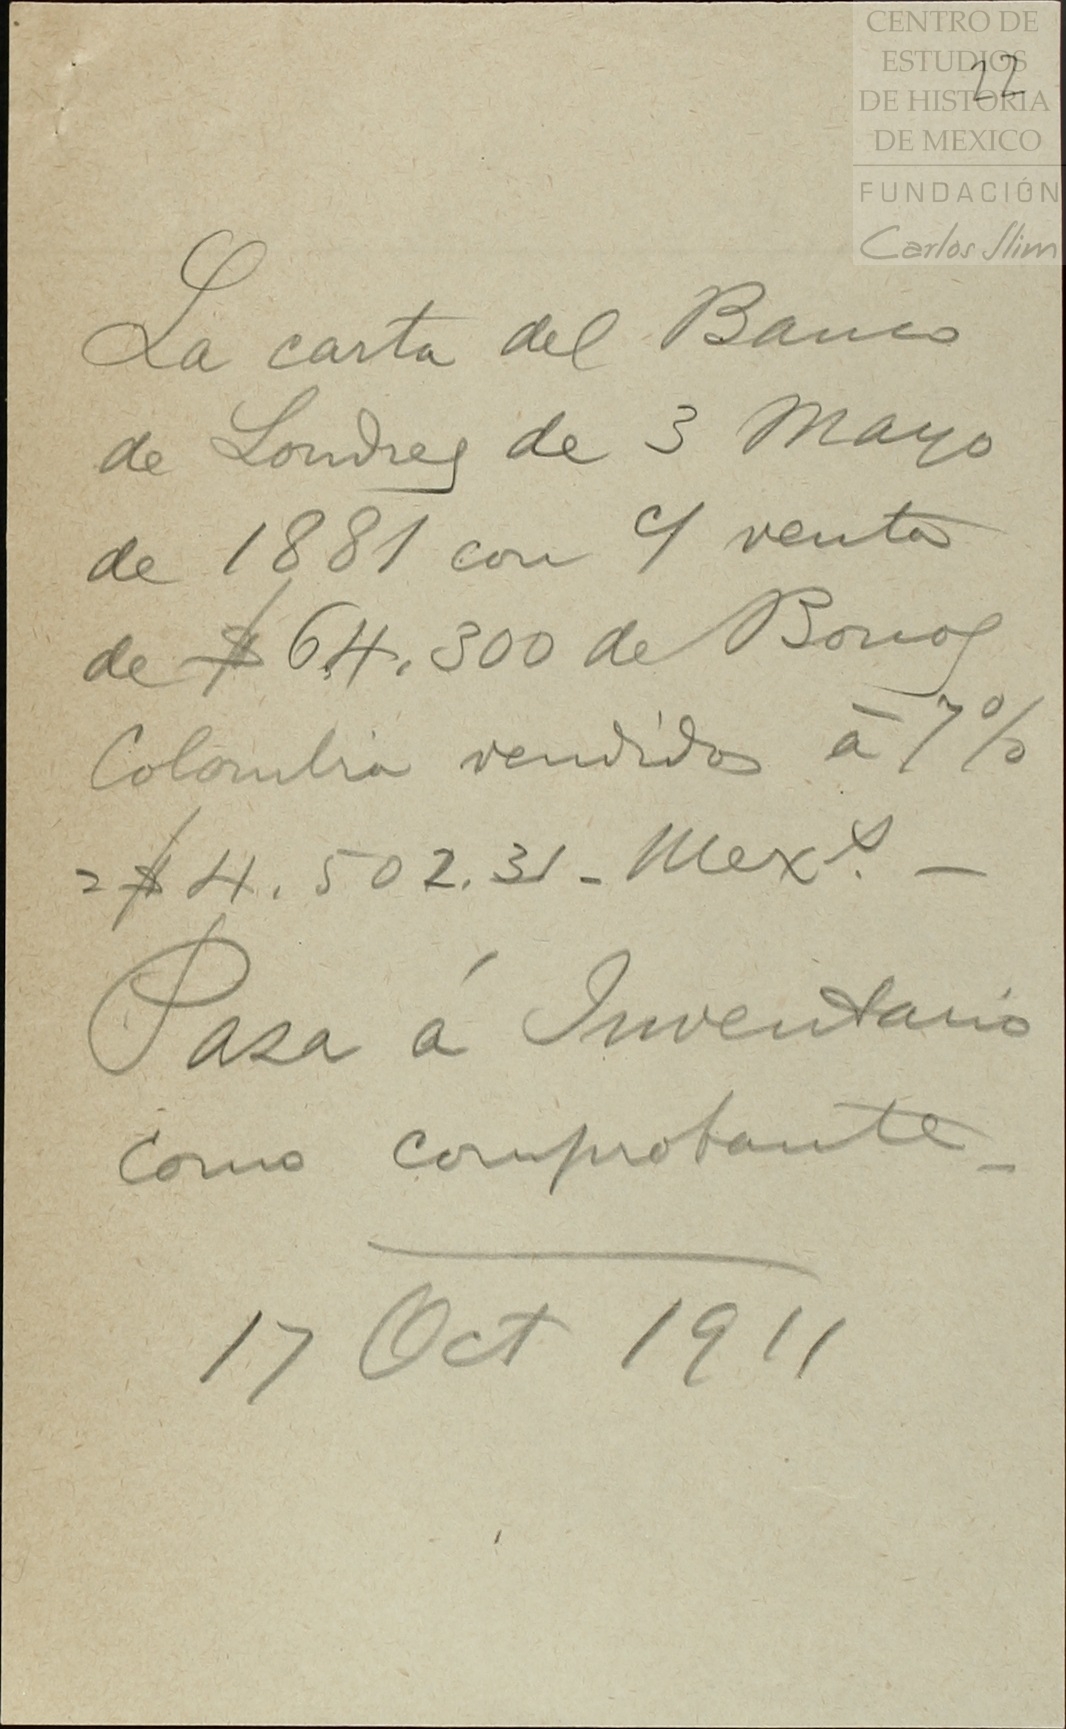 CENTRO DE
ESTUDIOS
DE HISTORIA
DE MEXICO
FUNDACIÓN
Carlos Slim
22
La carta del Banco
de Londres de 3 Mayo
de 1881 con venta
de $64.300 de Bonos
Colombia vendidos á 7%
=$4.502.31- Mexs. —
Pasa á Inventario
como comprobante_
17 Oct 1911